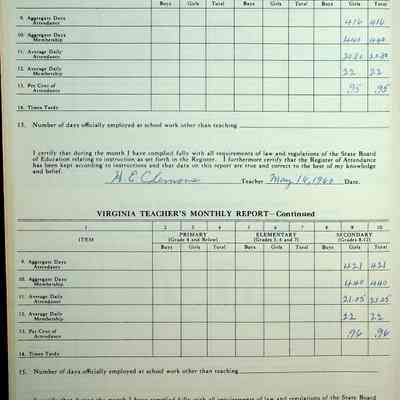 Boys Girls Total Boys Girls Total Boys Girls Total
9. Aggregate Days Attendance 416 416
10. Aggregate Days Membership 440 440
11. Average Daily Attendance 20.80 20.80
12. Average Daily Membership 22 22
13. Per Cent of Attendance .95 .95
14. Times Tardy
15. Number of days officially employed at school work other than teaching
I certify that during the month I have complied fully with all requirements of law and regulations of the State Board
of Education relating to instruction as set forth in the Register. I furthermore certify that the Register of Attendance
has been kept according to instructions and that data on this report are true and correct to the best of my knowledge
and belief.
H. E. Clemons Teacher May 14, 1960 Date.
VIRGINIA TEACHER'S MONTHLY REPORT—Continued
1 2 3 4 5 6 7 8 9 10
ITEM PRIMARY (Grade 4 and Below) ELEMENTARY (Grades 5, 6 and 7) SECONDARY (Grades 8-12)
Boys Girls Total Boys Girls Total Boys Girls Total
9. Aggregate Days Attendance 421 421
10. Aggregate Days Membership 440 440
11. Average Daily Attendance 21.05 21.05
12. Average Daily Membership 22 22
13. Per Cent of Attendance .96 .96
14. Times Tardy
15. Number of days officially employed at school work other than teaching
I certify that during the month I have complied fully with all requirements of law and regulations of the State Board